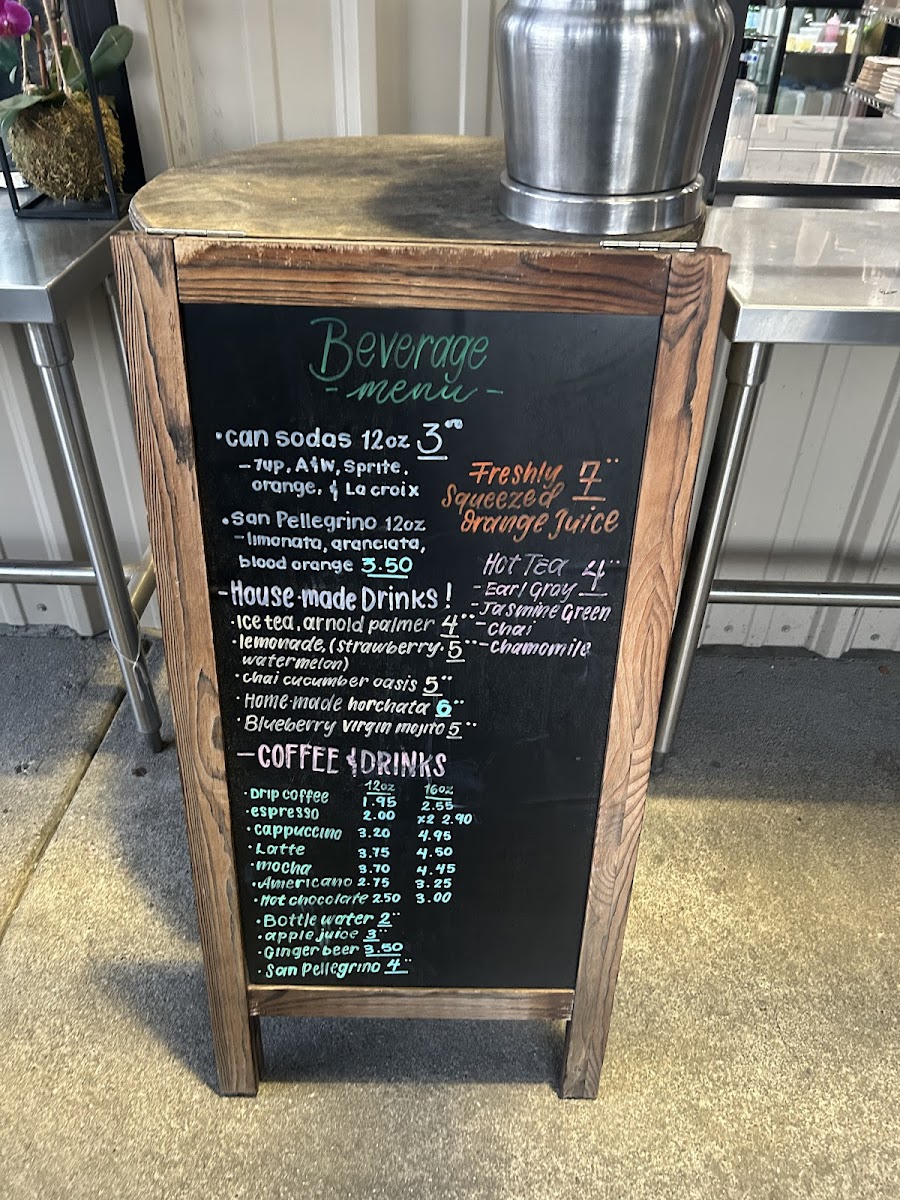 Beverage
- menu -
• can sodas 12oz 3.00
- 7up, A&W, Sprite,
orange, & La croix
• San Pellegrino 12oz
- limonata, aranciata,
blood orange 3.50
- House-made Drinks!
• Ice tea, arnold palmer 4..
• lemonade, (strawberry. 5..
watermelon)
• chai cucumber oasis 5..
• Home-made horchata 6..
• Blueberry virgin mojito 5..
Freshly 7..
Squeezed
Orange Juice
Hot Tea 4..
- Earl Gray
- Jasmine Green
- Chai
- Chamomile
- COFFEE & DRINKS
12oz 16oz
• Drip coffee 1.95 2.55
• espresso 2.00 x2 2.90
• cappuccino 3.20 4.95
• Latte 3.75 4.50
• mocha 3.70 4.45
• Americano 2.75 3.25
• Hot chocolate 2.50 3.00
• Bottle water 2..
• apple juice 3..
• Ginger beer 3.50
• San Pellegrino 4..